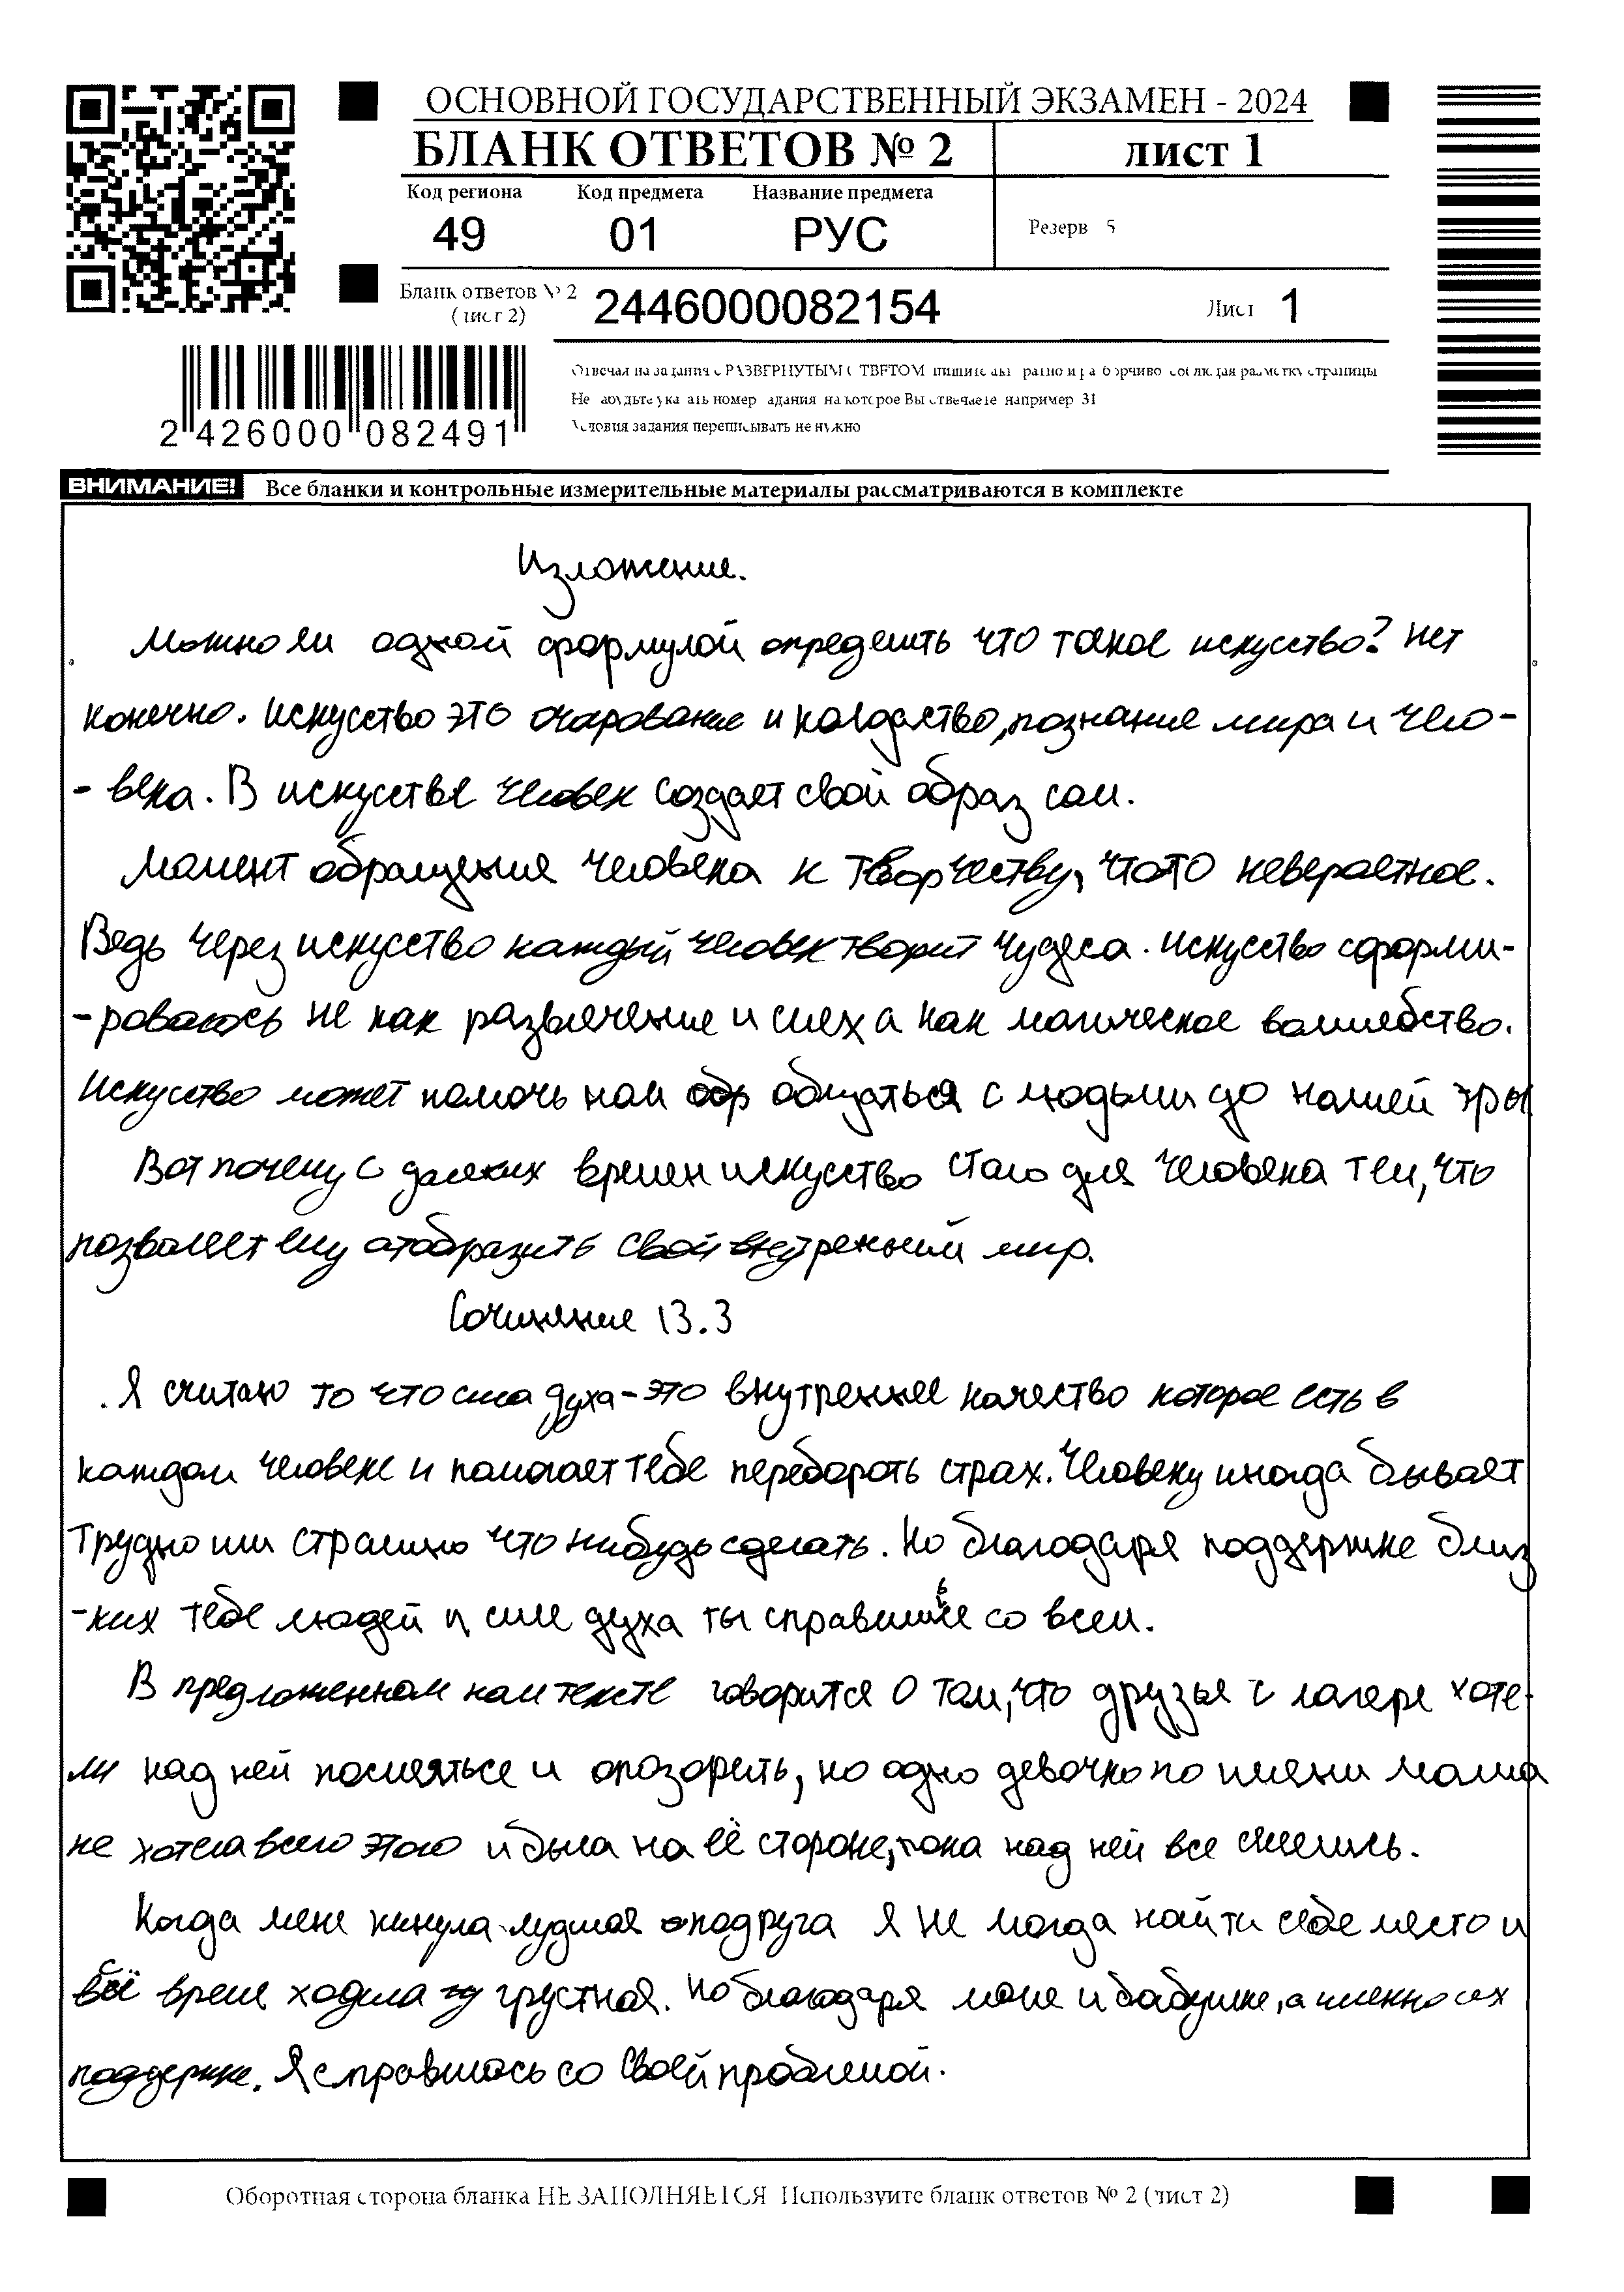 ОСНОВНОЙ ГОСУДАРСТВЕННЫЙ ЭКЗАМЕН - 2024
БЛАНК ОТВЕТОВ № 2
лист 1
Код региона Код предмета Название предмета
49 01 РУС
Резерв 5
Бланк ответов № 2
(лист 2)
2446000082154
Лист 1
2 426000 082491
Отвечая на задания с РАЗВЕРНУТЫМ ОТВЕТОМ пишите аккуратно и разборчиво соблюдая разметку страницы
Не забудьте указать номер задания на которое Вы отвечаете например 31
Условия задания переписывать не нужно
ВНИМАНИЕ! Все бланки и контрольные измерительные материалы рассматриваются в комплекте
Изложение.
Можно ли одной формулой определить что такое искусство? Нет
конечно. Искусство это очарование и колдовство, познание мира и чело-
- века. В искусстве человек создает свой образ сам.
Момент обращения человека к творчеству, чтото невероетное.
Ведь через искусство каждый человек творит чудеса. Искусство сформи-
- ровалось не как развлечение и смех а как магическое волшебство.
Искусство может помочь нам общаться с людьми до нашей эры
Вот почему с далеких времен искусство стало для человека тем, что
позволяет ему отобразить свой внутренний мир.
Сочинение 13.3
Я считаю то что сила духа - это внутреннее качество которое есть в
каждом человеке и помогает тебе перебороть страх. Человеку иногда бывает
трудно или страшно что нибудь сделать. Но благодаря поддержке близ
- ких тебе людей и силе духа ты справишьсе со всем.
В предложенном нам тексте говорится о том, что друзья с лагере хоте-
ли над ней посмеяться и опозорить, но одно девочко по имени Маша
не хотела всего этого и была на её стороне, пока над ней все смеелись.
Когда мене кинула лудшая подруга я не могда найти себе место и
всё време ходила грустная. Но благодаря маме и бабушке, а именно их
поддержке. Я справилась со своей проблемой.
Оборотная сторона бланка НЕ ЗАПОЛНЯЕТСЯ Используйте бланк ответов № 2 (лист 2)